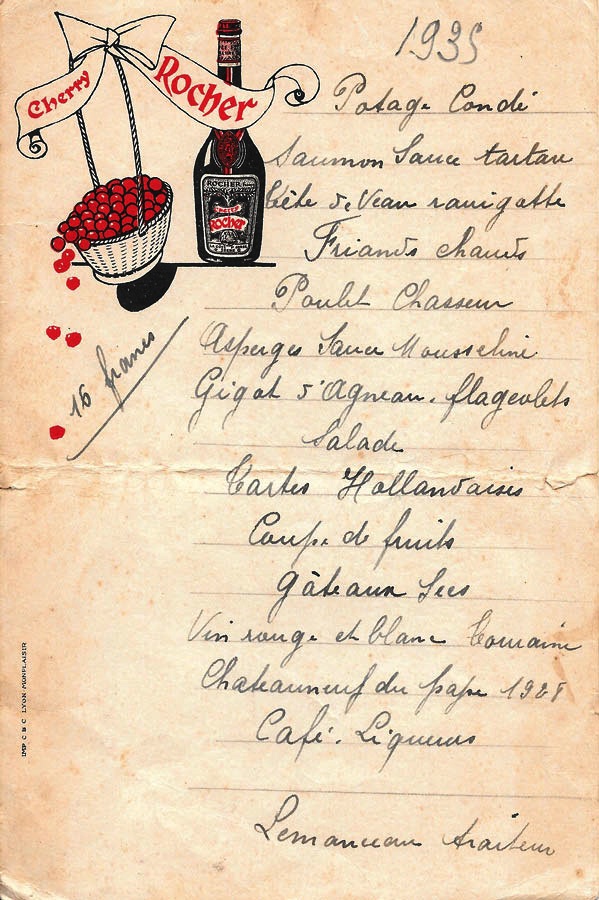 1935
Cherry Rocher
ROCHER
CHERRY
Rocher
Potage Condé
Saumon Sauce tartare
Tête de Veau ravigotte
Friands chauds
Poulet Chasseur
Asperges Sauce Mousseline
16 francs
Gigot d'Agneau. flageolets
Salade
Tartes Hollandaises
Coupe de fruits
Gâteaux Secs
Vin rouge et blanc Touraine
Chateauneuf du pape 1928
Café. Liqueurs
Lemanceau traiteur
IMP C B C LYON-MONPLAISIR